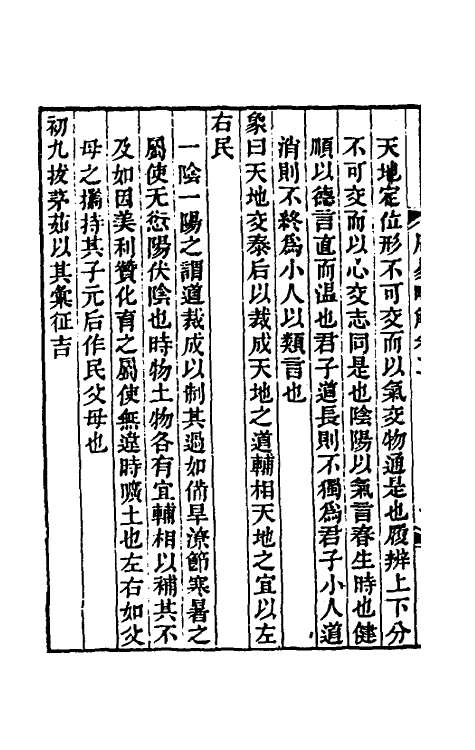 天地定位形不可交而以氣交物通是也履辨上下分
不可交而以心交志同是也陰陽以氣言春生時也健
順以德言直而温也君子道長則不獨為君子小人道
消則不終為小人以類言也
象曰天地交泰后以裁成天地之道輔相天地之宜以左
右民
一陰一陽之謂道裁成以制其過如備旱潦節寒暑之
屬使无愆陽伏陰也時物土物各有宜輔相以補其不
及如因美利贊化育之屬使無違時曠土也左右如父
母之攜持其子元后作民父母也
初九拔茅茹以其彙征吉